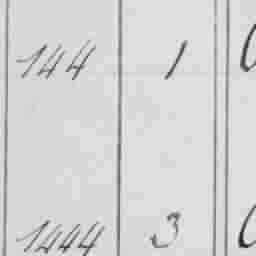 144 1
1444 3